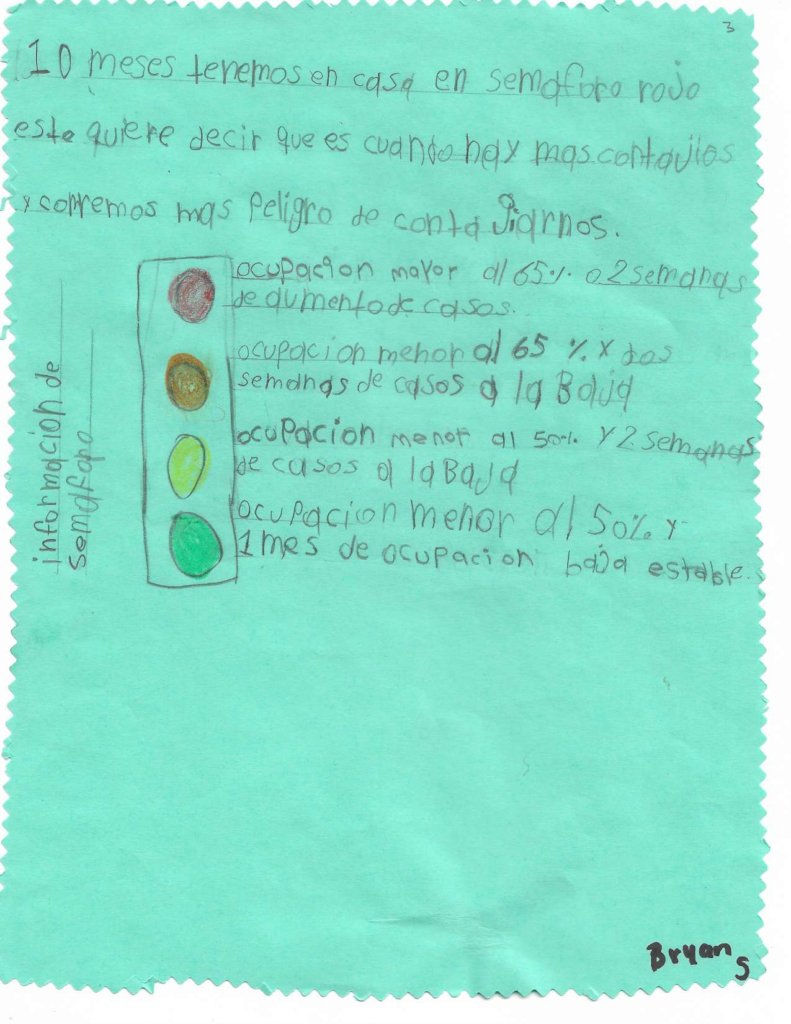 3
10 meses tenemos en casa en semaforo rojo
este quiere decir que es cuando hay mas contajios
y corremos mas peligro de contajiarnos.
ocupacion mayor al 65% o 2 semanas
de aumento de casos.
ocupacion menor al 65 % x dos
semanas de casos a la Baja
ocupacion menor al 50% y 2 semanas
de casos a la Baja
ocupacion menor al 50% y
1 mes de ocupacion baja estable.
informacion de
semaforo
Bryan
5